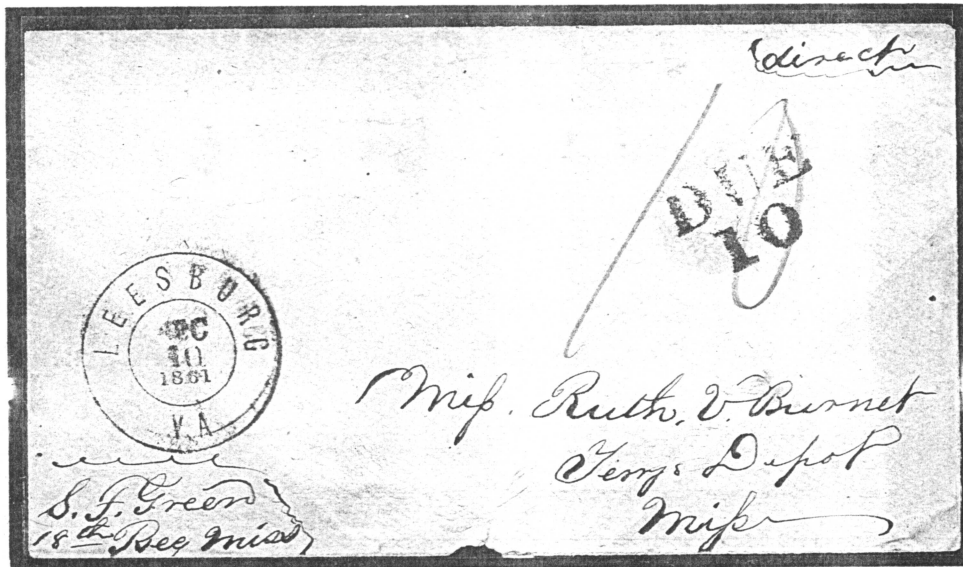 direct
DUE
10
10
LEESBURG
DEC
10
1861
VA
Miss. Ruth, V. Burnet
Terrys Depot
Miss
S. F. Green
18th Reg Miss